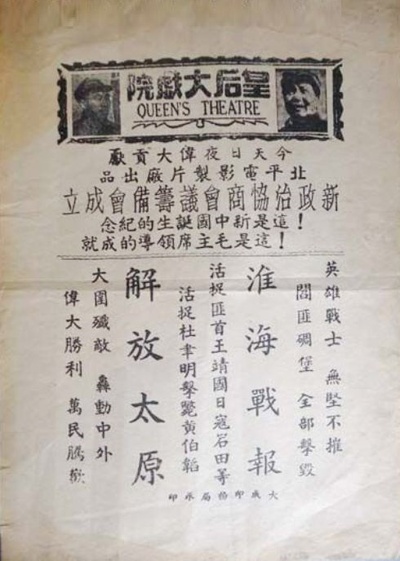 皇后大戲院
QUEEN'S THEATRE
今天日夜偉大貢獻
北平電影製片廠出品
新政治協商會議籌備會成立
這是新中國誕生的紀念！
這是毛主席領導的成就！
英雄戰士 無堅不摧
閻匪碉堡 全部擊毀
淮海戰報
活捉匪首王靖國日寇石田等
活捉杜聿明擊斃黃伯韜
解放太原
大圍殲敵 轟動中外
偉大勝利 萬民騰歡
大成印務局承印